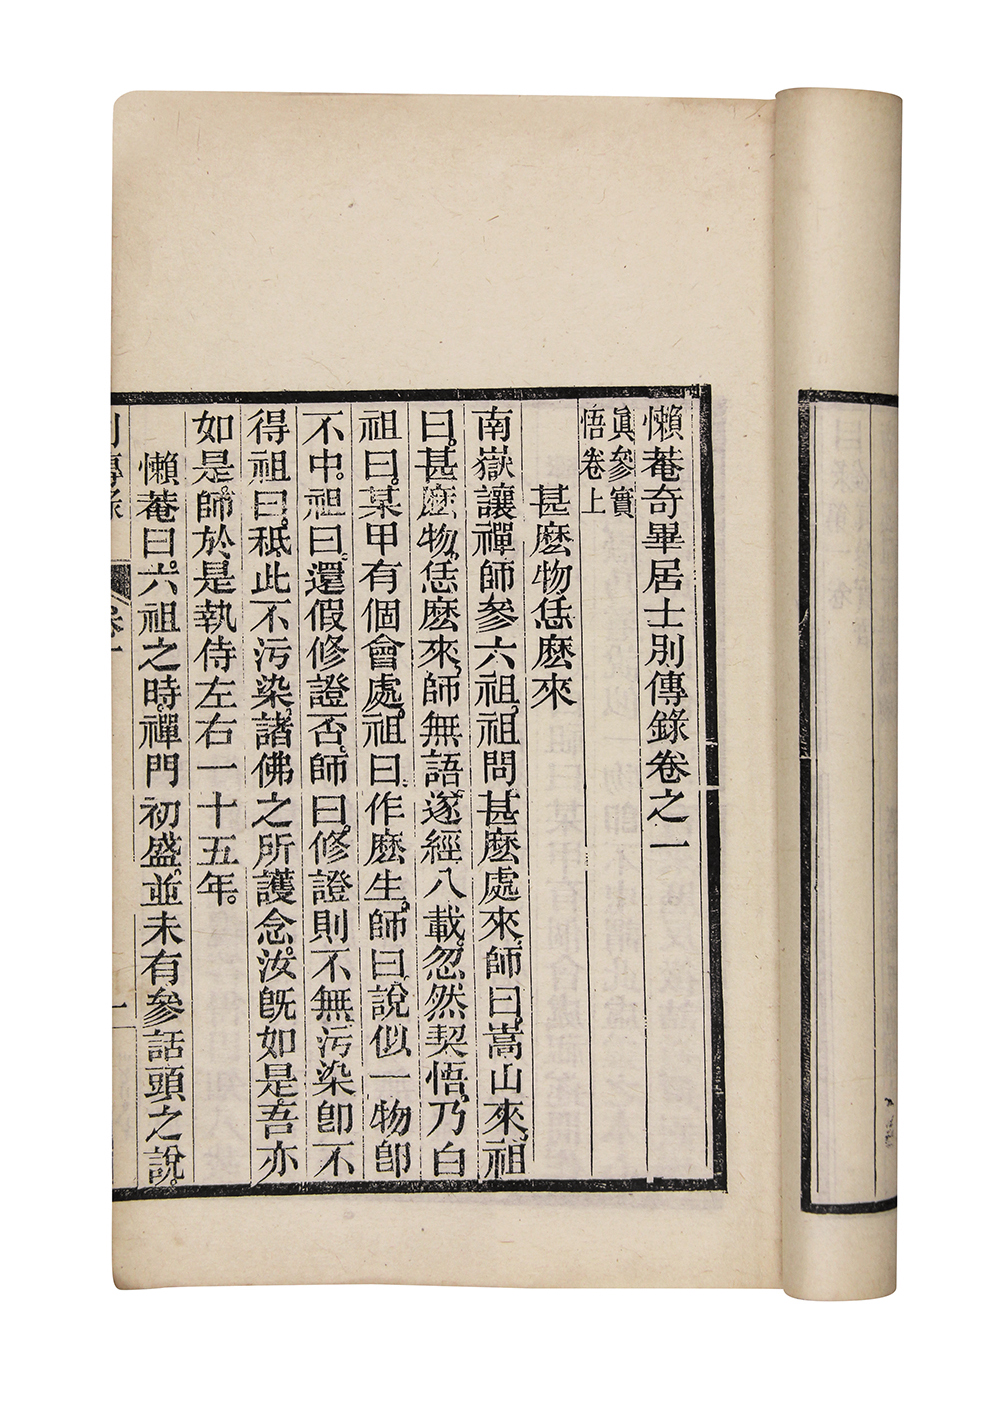 懶菴奇畢居士別傳錄卷之一
眞參實
悟卷上
甚麼物恁麼來
南嶽讓禪師參六祖。祖問甚麼處來。師曰嵩山來。祖
曰。甚麼物。恁麼來。師無語。遂經八載。忽然契悟。乃白
祖曰。某甲有個會處。祖曰。作麼生。師曰說似一物卽
不中。祖曰。還假修證否。師曰。修證則不無污染卽不
得祖曰。秪此不污染。諸佛之所護念。汝旣如是吾亦
如是。師於是執侍左右一十五年。
懶菴曰。六祖之時。禪門初盛。並未有參話頭之說。
卷一
一